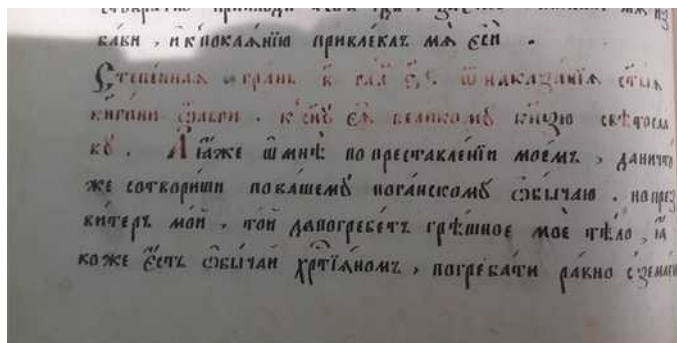 бави , и҆ к̾покаѧ́нїю привле́калъ мѧ̀ є҆сѝ .
Степе́ннаѧ гра́нь в҃ гла҃ є҃ . ѿ наказа́нїѧ ст҃ы́ѧ
кнѧ҃гини ѻ҆́льги . к̾ сн҃ꙋ є҆ѧ̀ вели́комꙋ кн҃зю свѣтосла
вꙋ . А ꙗ҆́же ѿ мнѣ̀ по преставле́нїи мое́мъ , да ничто́
же сотвори́ши по ва́шемꙋ̀ пога́нскомꙋ ѻ҆бы́чаю . но през
ви́теръ мо́й , то́й да погребе́тъ грѣ́шное моѐ тѣ́ло , ꙗ҆́
коже є҆́сть ѻ҆бы́чай хр҇тїѧ́номъ , погреба́ти ра́вно с̾ земле́ю